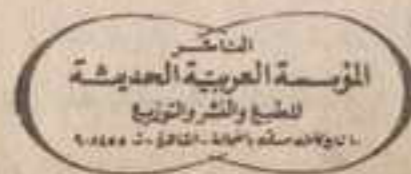 الناشر
المؤسسة العربية الحديثة
للطبع والنشر والتوزيع
١٠ شارع كامل صدقى بالفجالة - القاهرة - ت ٩٠٨٤٥٥